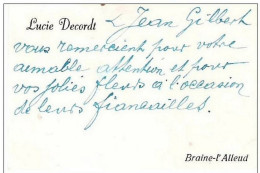 Lucie Decordt & Jean Gilbert
vous remercient pour votre
aimable attention et pour
vos jolies fleurs à l'occasion
de leurs fiançailles.
Braine-l'Alleud